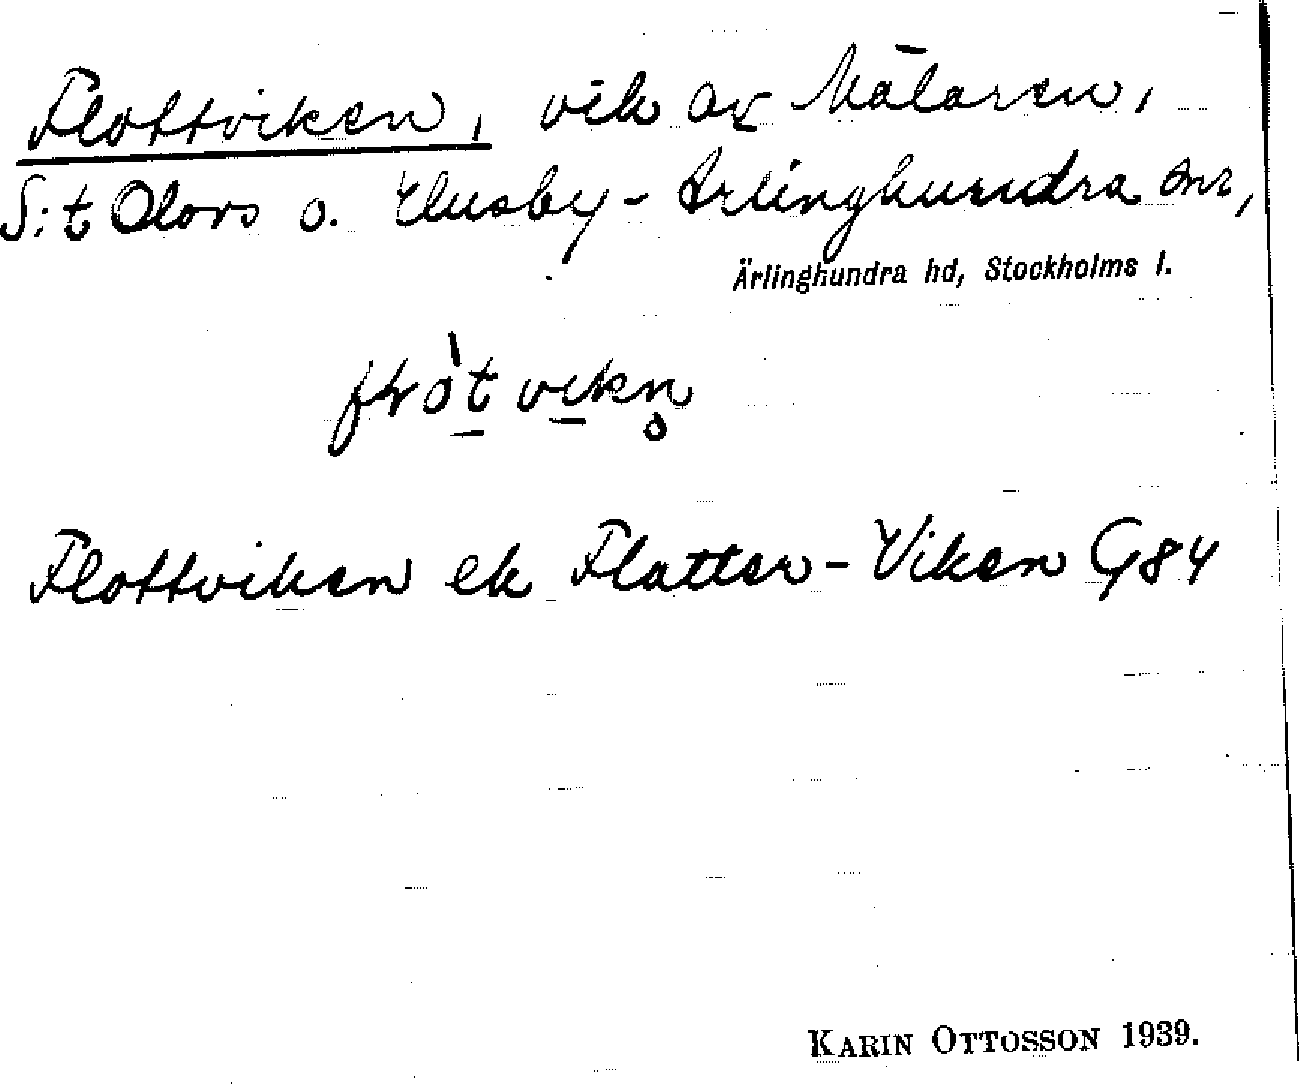 Flottviken, vik av Mälaren,
S:t Olovs o. Husby-Ärlinghundra snr,
Ärlinghundra hd, Stockholms l.
Flottviken ek Flatten-Viken G84
KARIN OTTOSSON 1939.